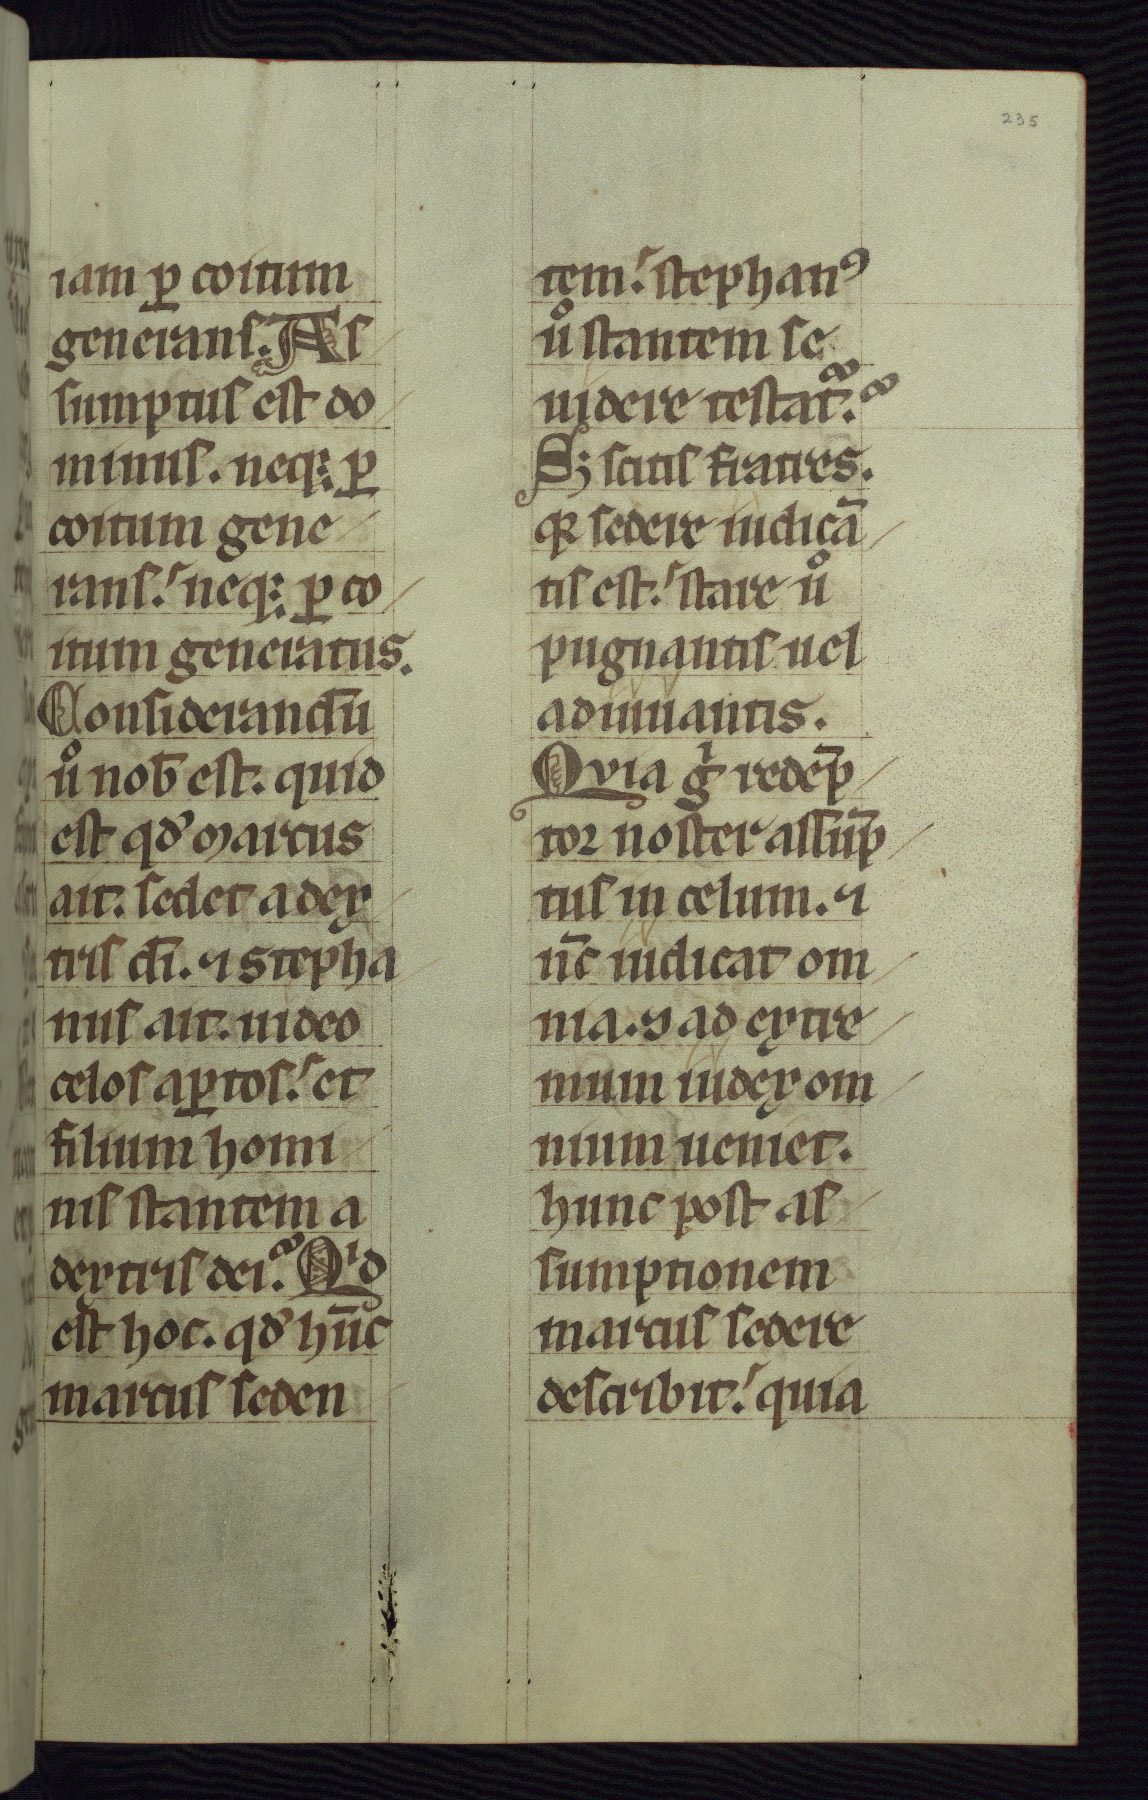 235
iam ꝑ coitum
generans. As
sumptus est do
minus. neq; ꝑ
coitum gene
rans. neq; ꝑ co
itum generatus.
Considerandū
uͦ nob̄ est. quid
est qd̓ marcus
ait. sedet a dex
tris dī. ⁊ stepha
nus ait. uideo
celos aꝑtos. et
filium homi
nis stantem a
dextris dei. Qⁱd
est hoc. qd̓ hūc
marcus seden
tem. stephanꝰ
uͦ stantem se
uidere testat᷑.
S; scitis fratres.
qꝛ sedere iudicā
tis est. stare uͦ
pugnantis uel
adiuuantis.
Qvia gͥ redēp
tor noster assūp
tus in celum. ⁊
nc̄ iudicat om
nia. ⁊ ad extre
mum iudex om
nium ueniet.
hunc post as
sumptionem
marcus sedere
describit. quia